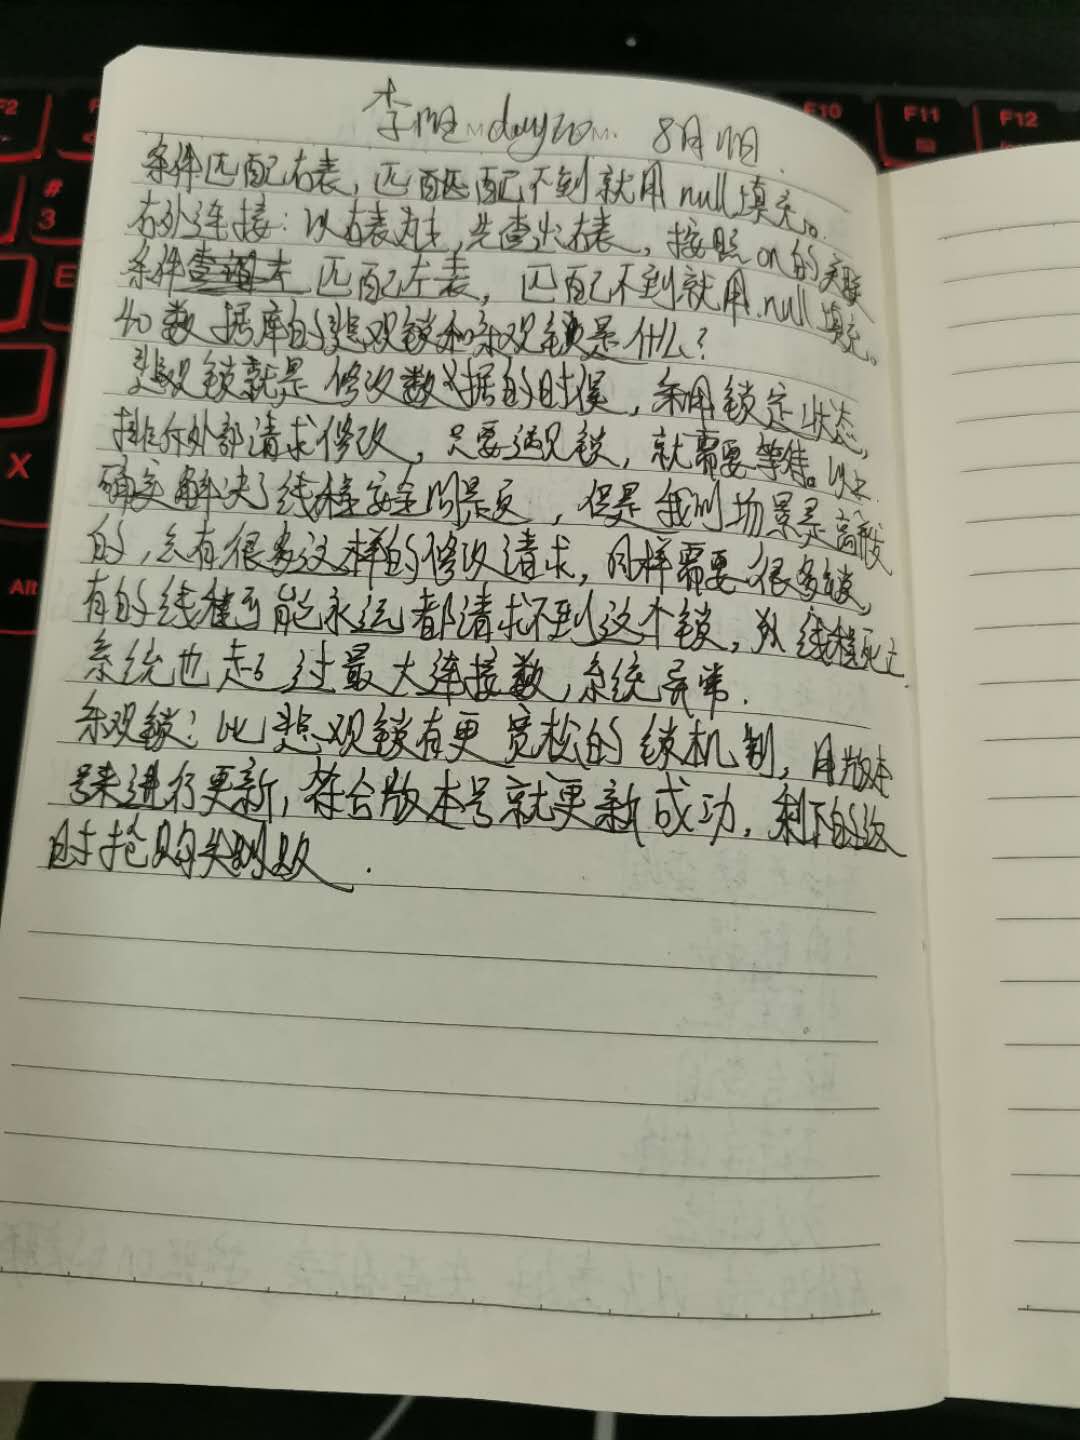 李 day20 8月
条件匹配右表，匹配匹配不到就用null填充。
右外连接：以右表为主，先查出右表，按照on的关联
条件 匹配左表，匹配不到就用null填充。
40 数据库的悲观锁和乐观锁是什么？
悲观锁就是修改数据的时候，采用锁定状态，
排斥外部请求修改，只要遇见锁，就需要等待。以上
确实解决了线程安全问题，但是我们场景是高并发
的，会有很多这样的修改请求，同样需要很多锁，
有的线程可能永远都请求不到这个锁，线程死亡
系统也超过最大连接数，系统异常．
乐观锁：比悲观锁有更宽松的锁机制，用版本
号来进行更新，符合版本号就更新成功，剩下的
时抢购失败．
F2 F10 F11 F12
# 3
E
X
Alt